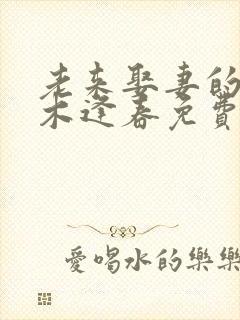 老来娶妻的
木逢春免費
愛喝水的樂樂